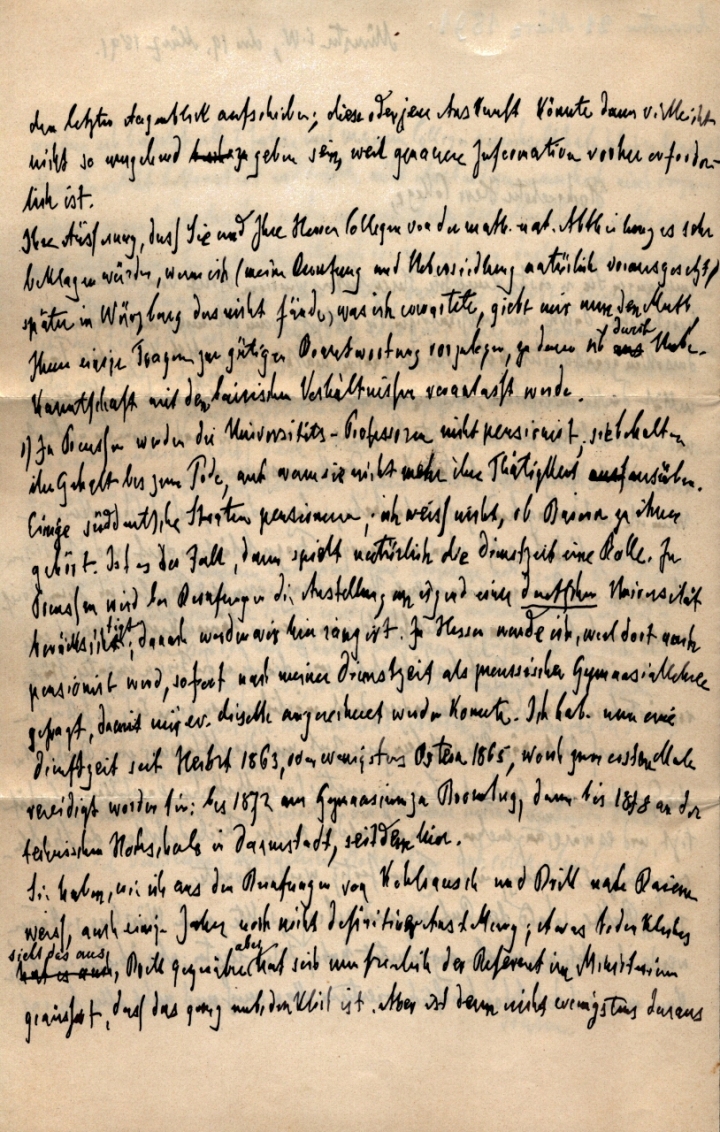 den letzten Augenblick aufschieben; diese oder jene Auskunft könnte dann vielleicht
nicht so umgehend zu geben sein, weil genauere Information vorher erforder-
lich ist.
Ihre Äußerung, daß Sie und Ihre Herren Collegen von der math.-nat. Abtheilung es sehr
beklagen würden, wenn ich (meine Berufung und Uebersiedlung natürlich vorausgesetzt)
später in Würzburg das nicht fände, was ich erwartete, giebt mir nun den Muth
Ihnen einige Fragen zur gütigen Beantwortung vorzulegen, zu denen ich durch Unbe-
kanntschaft mit den bairischen Verhältnissen veranlasst werde.
1) In Preussen werden die Universitäts-Professoren nicht pensionirt, sie behalten
ihr Gehalt bis zum Tode, auch wenn sie nicht mehr ihre Thätigkeit ausüben.
Einige süddeutsche Staaten pensioniren; ich weiss nicht, ob Baiern zu ihnen
gehört. Ist es der Fall, dann spielt natürlich die Dienstzeit eine Rolle. In
Preussen wird bei Berufungen die Anstellung an irgend einer deutschen Universität
berücksichtigt; danach werden wir hier rangirt. In Hessen wurde ich, weil dort auch
pensionirt wird, sofort nach meiner Dienstzeit als preussischer Gymnasiallehrer
gefragt, damit mir ev. dieselbe angerechnet werden konnte. Ich habe nun eine
Dienstzeit seit Herbst 1863, oder wenigstens Ostern 1865, wo ich zum ersten Male
vereidigt worden bin: bis 1872 am Gymnasium zu Bromberg, dann bis 1878 an der
technischen Hochschule in Darmstadt, seitdem hier.
Sie haben, wie ich aus den Berufungen von Kohlrausch und Brill nach Baiern
weiss, auch einige Jahre noch nicht definitiver Anstellung; etwas bedenkliches
sieht das aus, Brill gegenüber aber hat sich nun freilich der Referent im Ministerium
geäussert, daß das ganz unbedenklich ist. Aber ist denn nicht wenigstens daraus